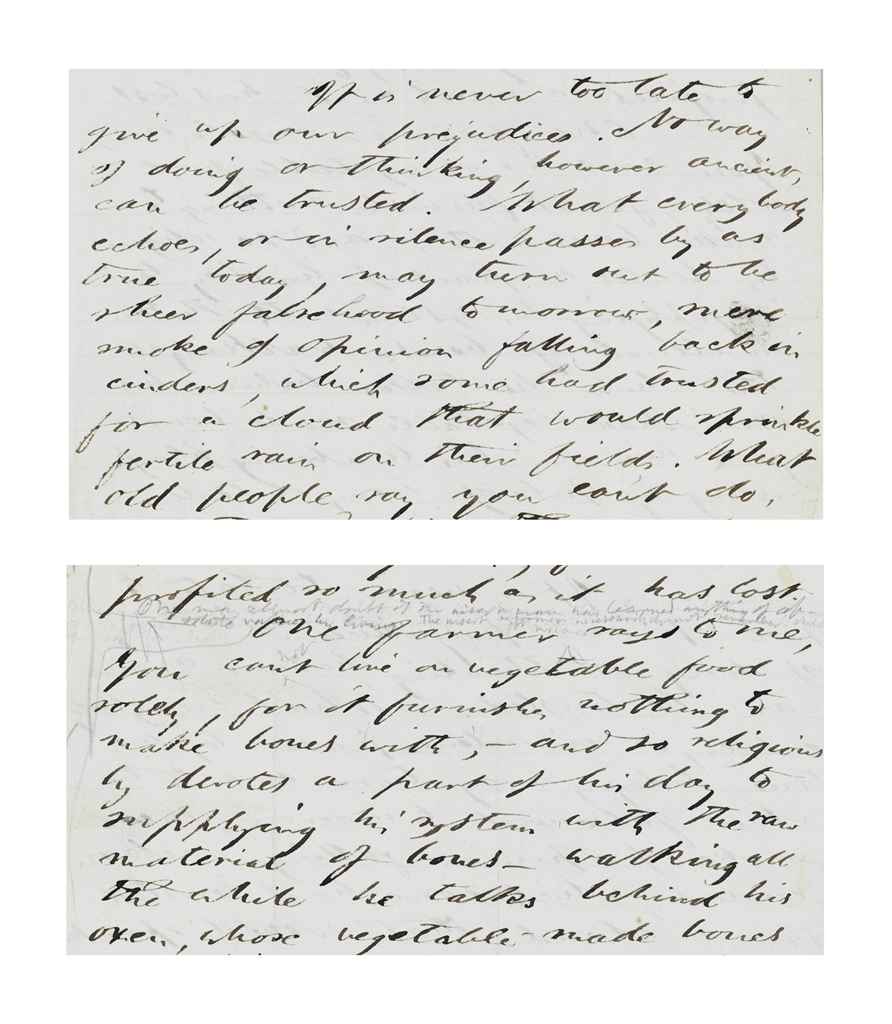 It is never too late to
give up our prejudices. No way
of doing or thinking, however ancient,
can be trusted. What everybody
echoes, or in silence passes by as
true today, may turn out to be
sheer falsehood tomorrow, mere
smoke of opinion falling back in
cinders, which some had trusted
for a cloud that would sprinkle
fertile rain on their fields. What
old people say you can't do,
profited so much as it has lost.
One may almost doubt if the wisest man has learned anything of
absolute value by living.
One farmer says to me,
not
You can't live on vegetable food
solely, for it furnishes nothing to
make bones with,— and so religious
ly devotes a part of his day to
supplying his system with the raw
material of bones— walking all
the while he talks behind his
oxen, whose vegetable-made bones